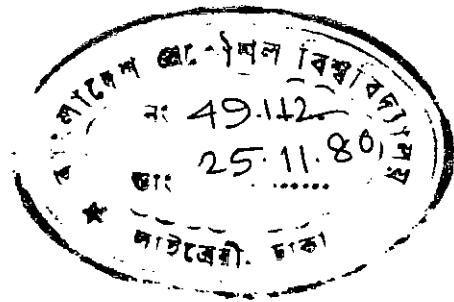 বাংলাদেশ প্রকৌশল বিশ্ববিদ্যালয়
নং 49112
তাং 25.11.80
লাইব্রেরী. ঢাকা